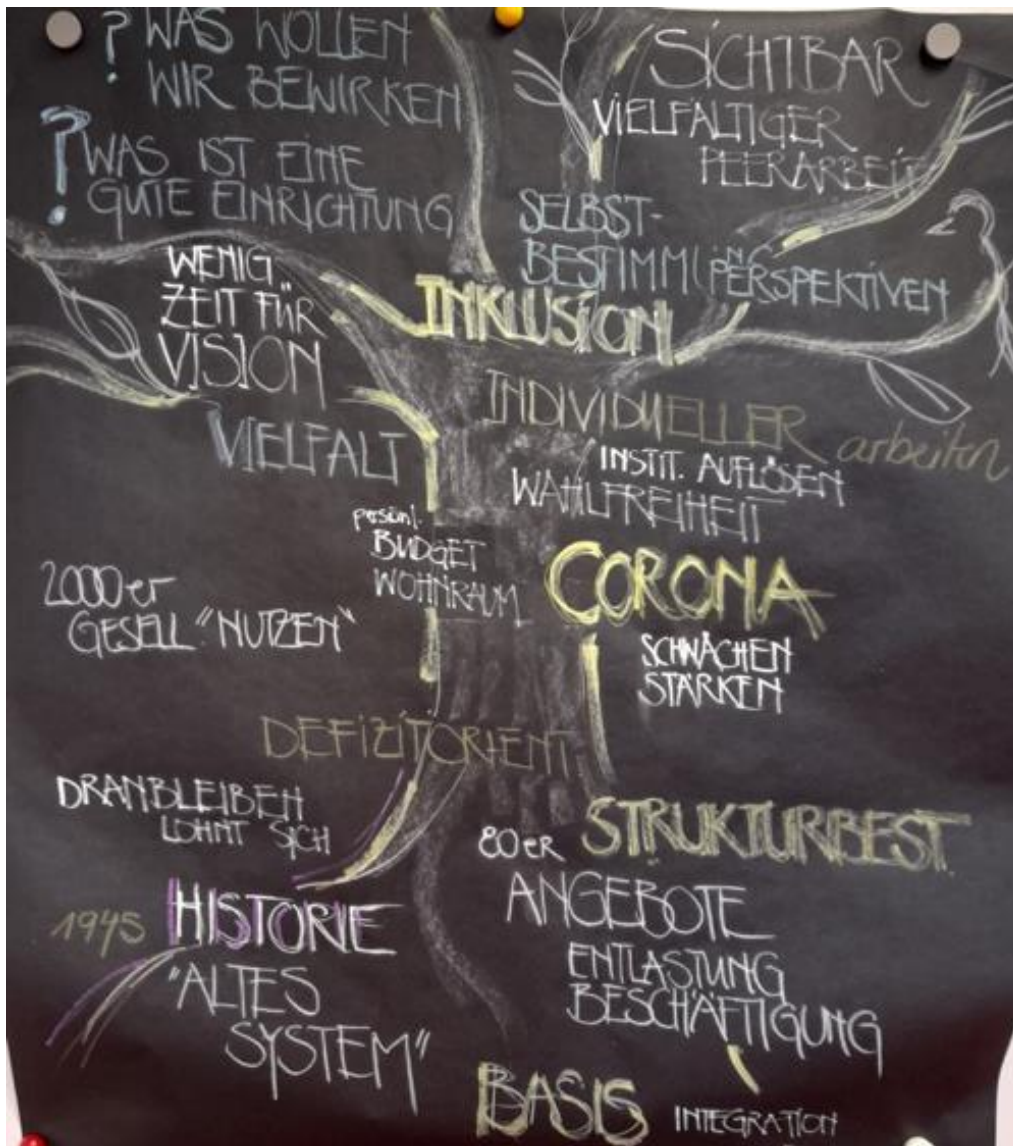 ? WAS WOLLEN
WIR BEWIRKEN
? WAS IST EINE
GUTE EINRICHTUNG
SICHTBAR
VIELFALTIGER
PEERARBEIT
SELBST-
BESTIMMUNG
PERSPEKTIVEN
WENIG
ZEIT FÜR
VISION
INKLUSION
VIELFALT
INDIVIDUELLER arbeiten
INSTIT. AUFLÖSEN
WAHLFREIHEIT
persönl.
BUDGET
WOHNRAUM
CORONA
SCHWÄCHEN
STÄRKEN
2000er
GESELL "NUTZEN"
DEFIZITORIENT.
DRANBLEIBEN
LOHNT SICH
80er STRUKTURBEST.
ANGEBOTE
ENTLASTUNG
BESCHÄFTIGUNG
1945 HISTORIE
"ALTES
SYSTEM"
BASIS
INTEGRATION